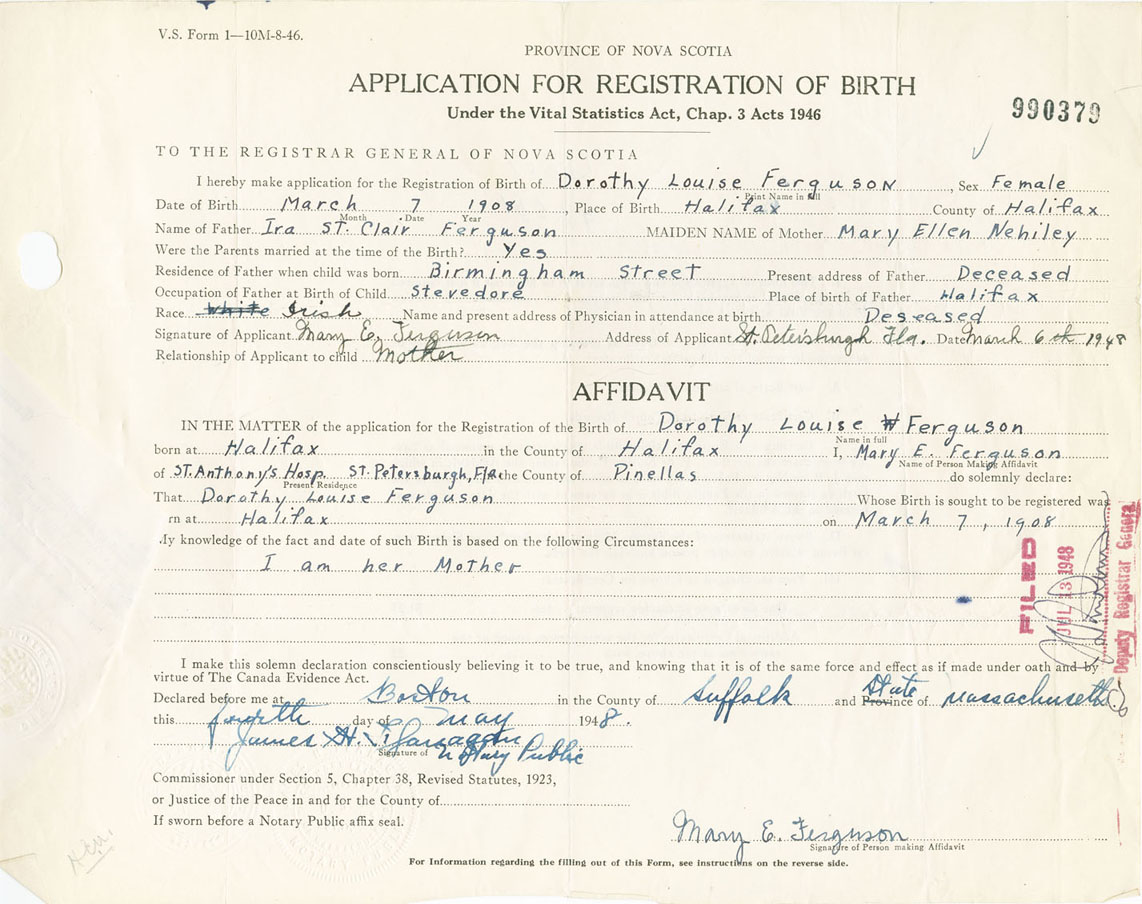 V.S. Form 1—10M-8-46.
PROVINCE OF NOVA SCOTIA
APPLICATION FOR REGISTRATION OF BIRTH
Under the Vital Statistics Act, Chap. 3 Acts 1946
990379
TO THE REGISTRAR GENERAL OF NOVA SCOTIA
I hereby make application for the Registration of Birth of Dorothy Louise Ferguson, Sex Female
Print Name in full
Date of Birth March 7 1908, Place of Birth Halifax County of Halifax
Month Date Year
Name of Father Ira ST. Clair Ferguson MAIDEN NAME of Mother Mary Ellen Nehiley
Were the Parents married at the time of the Birth? Yes
Residence of Father when child was born Birmingham Street Present address of Father Deceased
Occupation of Father at Birth of Child Stevedore Place of birth of Father Halifax
Race White Irish Name and present address of Physician in attendance at birth Deseased
Signature of Applicant Mary E. Ferguson Address of Applicant St. Petersburgh Fla. Date March 6th 1948
Relationship of Applicant to child Mother
AFFIDAVIT
IN THE MATTER of the application for the Registration of the Birth of Dorothy Louise Ferguson
Name in full
born at Halifax in the County of Halifax I, Mary E. Ferguson
Name of Person Making Affidavit
of ST. Anthony's Hosp. ST. Petersburgh, Fla. the County of Pinellas do solemnly declare:
Present Residence
That Dorothy Louise Ferguson Whose Birth is sought to be registered was
rn at Halifax on March 7, 1908
My knowledge of the fact and date of such Birth is based on the following Circumstances:
I am her Mother
FILED
JUL 13 1948
Deputy Registrar General
I make this solemn declaration conscientiously believing it to be true, and knowing that it is of the same force and effect as if made under oath and by
virtue of The Canada Evidence Act.
Declared before me at Boston in the County of Suffolk and Province State of Massachusetts
this fourth day of May 1948.
James H.
Signature of Notary Public
Commissioner under Section 5, Chapter 38, Revised Statutes, 1923,
or Justice of the Peace in and for the County of
If sworn before a Notary Public affix seal.
Mary E. Ferguson
Signature of Person making Affidavit
For Information regarding the filling out of this Form, see instructions on the reverse side.